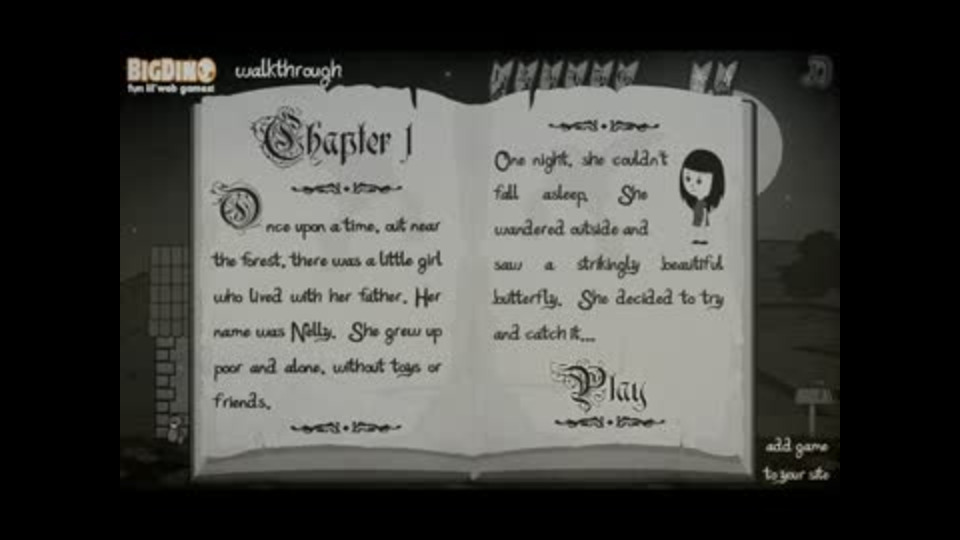 BIGDINO
fun lil' web games!
walkthrough
Chapter 1
Once upon a time, out near
the forest, there was a little girl
who lived with her father. Her
name was Nelly. She grew up
poor and alone, without toys or
friends.
One night, she couldn't
fall asleep. She
wandered outside and
saw a strikingly beautiful
butterfly. She decided to try
and catch it...
Play
add game
to your site